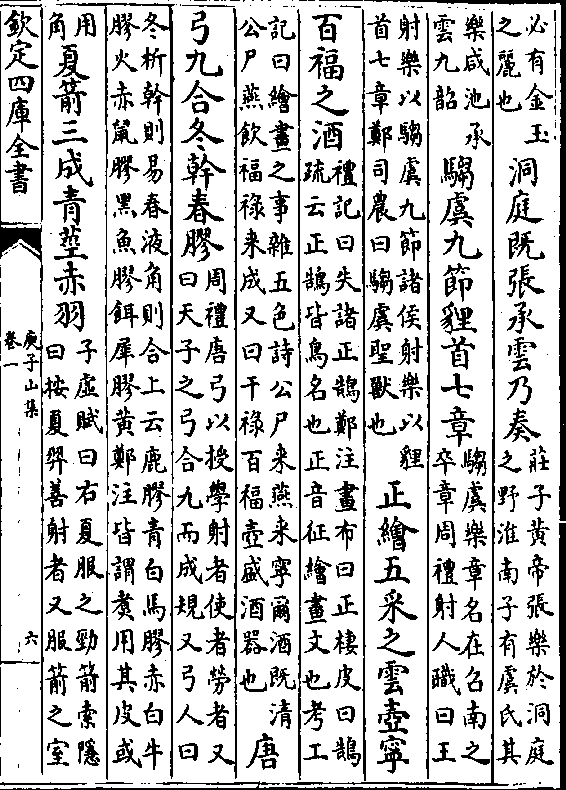 必有金玉
之麗也
洞庭既張承雲乃奏
莊子黃帝張樂於洞庭
之野淮南子有虞氏其
樂咸池承
雲九韶
騶虞九節貍首七章
騶虞樂章名在召南之
卒章周禮射人職曰王
射樂以騶虞九節諸侯射樂以貍
首七章鄭司農曰騶虞聖獸也
正繪五采之雲壺寧
百福之酒
禮記曰失諸正鵠鄭注畫布曰正棲皮曰鵠
疏云正鵠皆鳥名也正音征繪畫文也考工
記曰繪畫之事雜五色詩公尸来燕来寧爾酒既清
公尸燕飲福祿来成又曰干祿百福壺盛酒器也
唐
弓九合冬幹春膠
周禮唐弓以授學射者使者勞者又
曰天子之弓合九而成規又弓人曰
冬析幹則易春液角則合上云鹿膠青白馬膠赤白牛
膠火赤鼠膠黑魚膠餌犀膠黃鄭注皆謂煑用其皮或
用
角
夏箭三成青莖赤羽
子虛賦曰右夏服之勁箭索隱
曰按夏羿善射者又服箭之室
欽定四庫全書
庾子山集
卷一
六